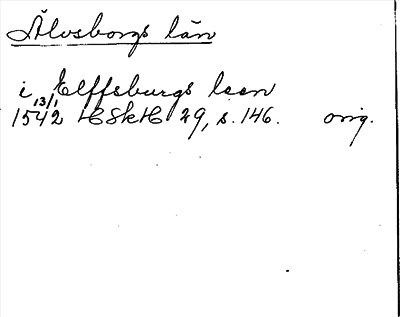 Älvsborgs län
i Elffsburgs leen
1542 13/1 HSkH 29, s. 146. orig.